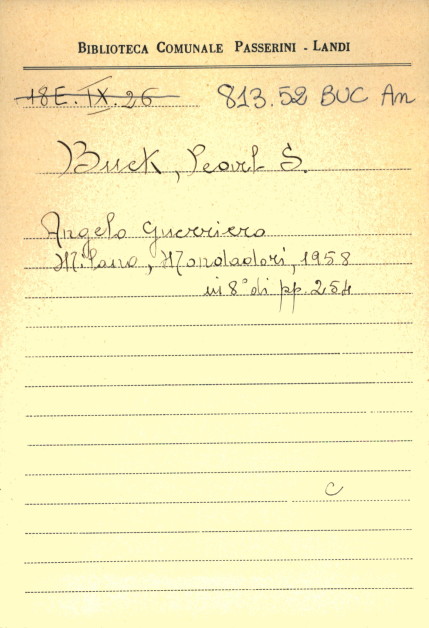 BIBLIOTECA COMUNALE PASSERINI - LANDI
18E. IX. 26 813.52 BUC An
Buck, Pearl S.
Angelo guerriero
Milano, Mondadori, 1958
in 8° di pp. 254
C